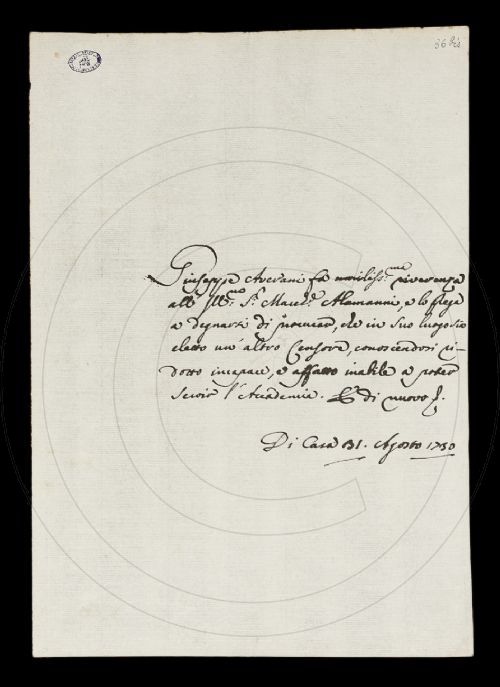 36 bis
Giuseppe Averani fa umiliss.ma riverenza
all' Ill.mo S.r Alamanni, e lo prega
a degnarsi di procurar, che in suo luogo sia
eletto un' altro Censore, conoscendosi ri-
dotto incapace, e affatto inabile a poter
servir l' Accademia. E di nuovo
Di Casa 31. Agosto 1730